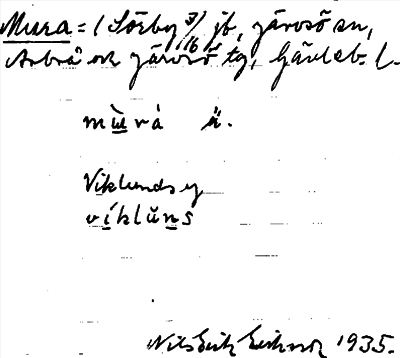 Mura = (Sörby 3/16) jb, Järvsö sn,
Arbrå och Järvsö tg, Gävleb. l.
mùrá ä.
Viklunds
víklŭns
Nils Erik Eriksson 1935.